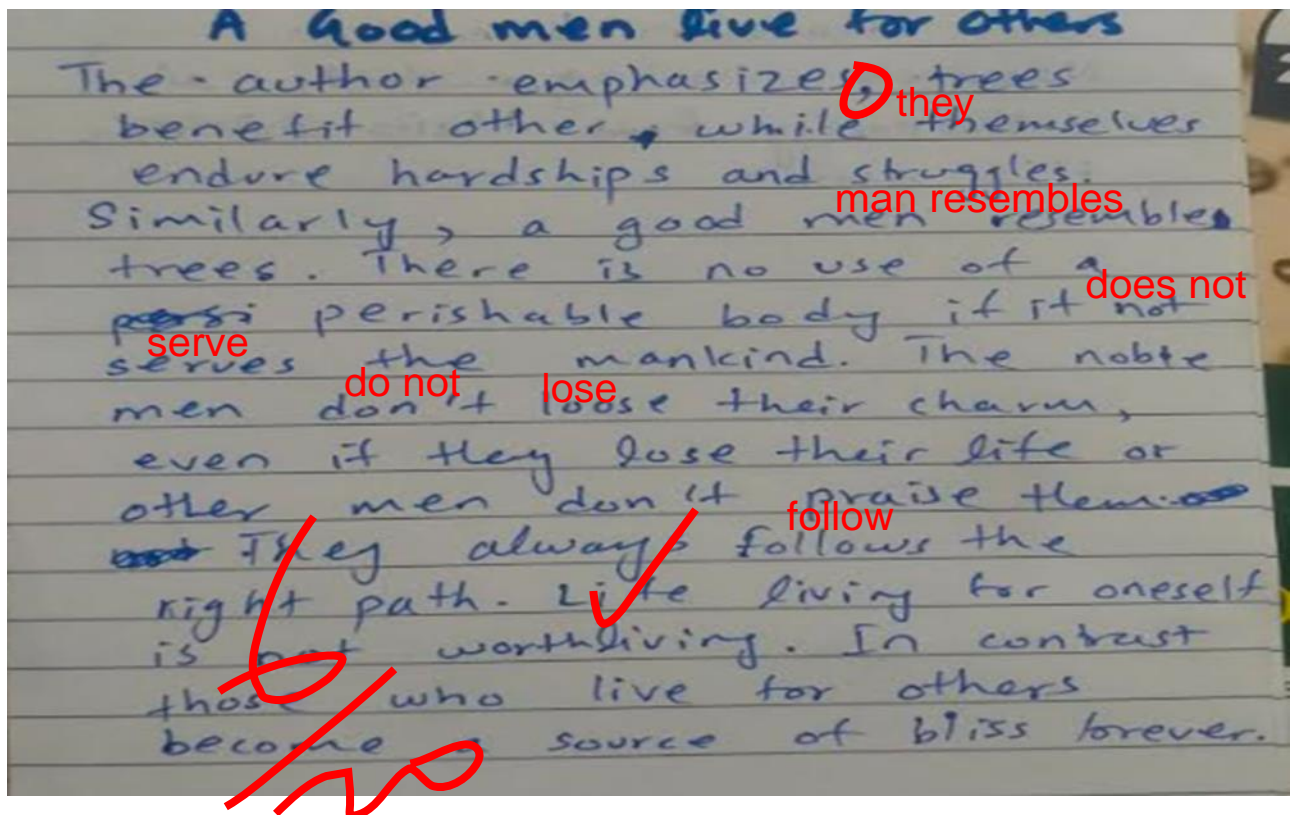 A Good men live for others
The author emphasizes, trees
they
benefit other, while themselves
endure hardships and struggles.
man resembles
Similarly, a good men resembles
trees. There is no use of a
does not
perishable body if it not
serve
serves the mankind. The noble
do not lose
men don't loose their charm,
even if they lose their life or
other men don't praise them.
follow
They always follows the
right path. Life living for oneself
is not worthliving. In contrast
those who live for others
become a source of bliss forever.
6/10